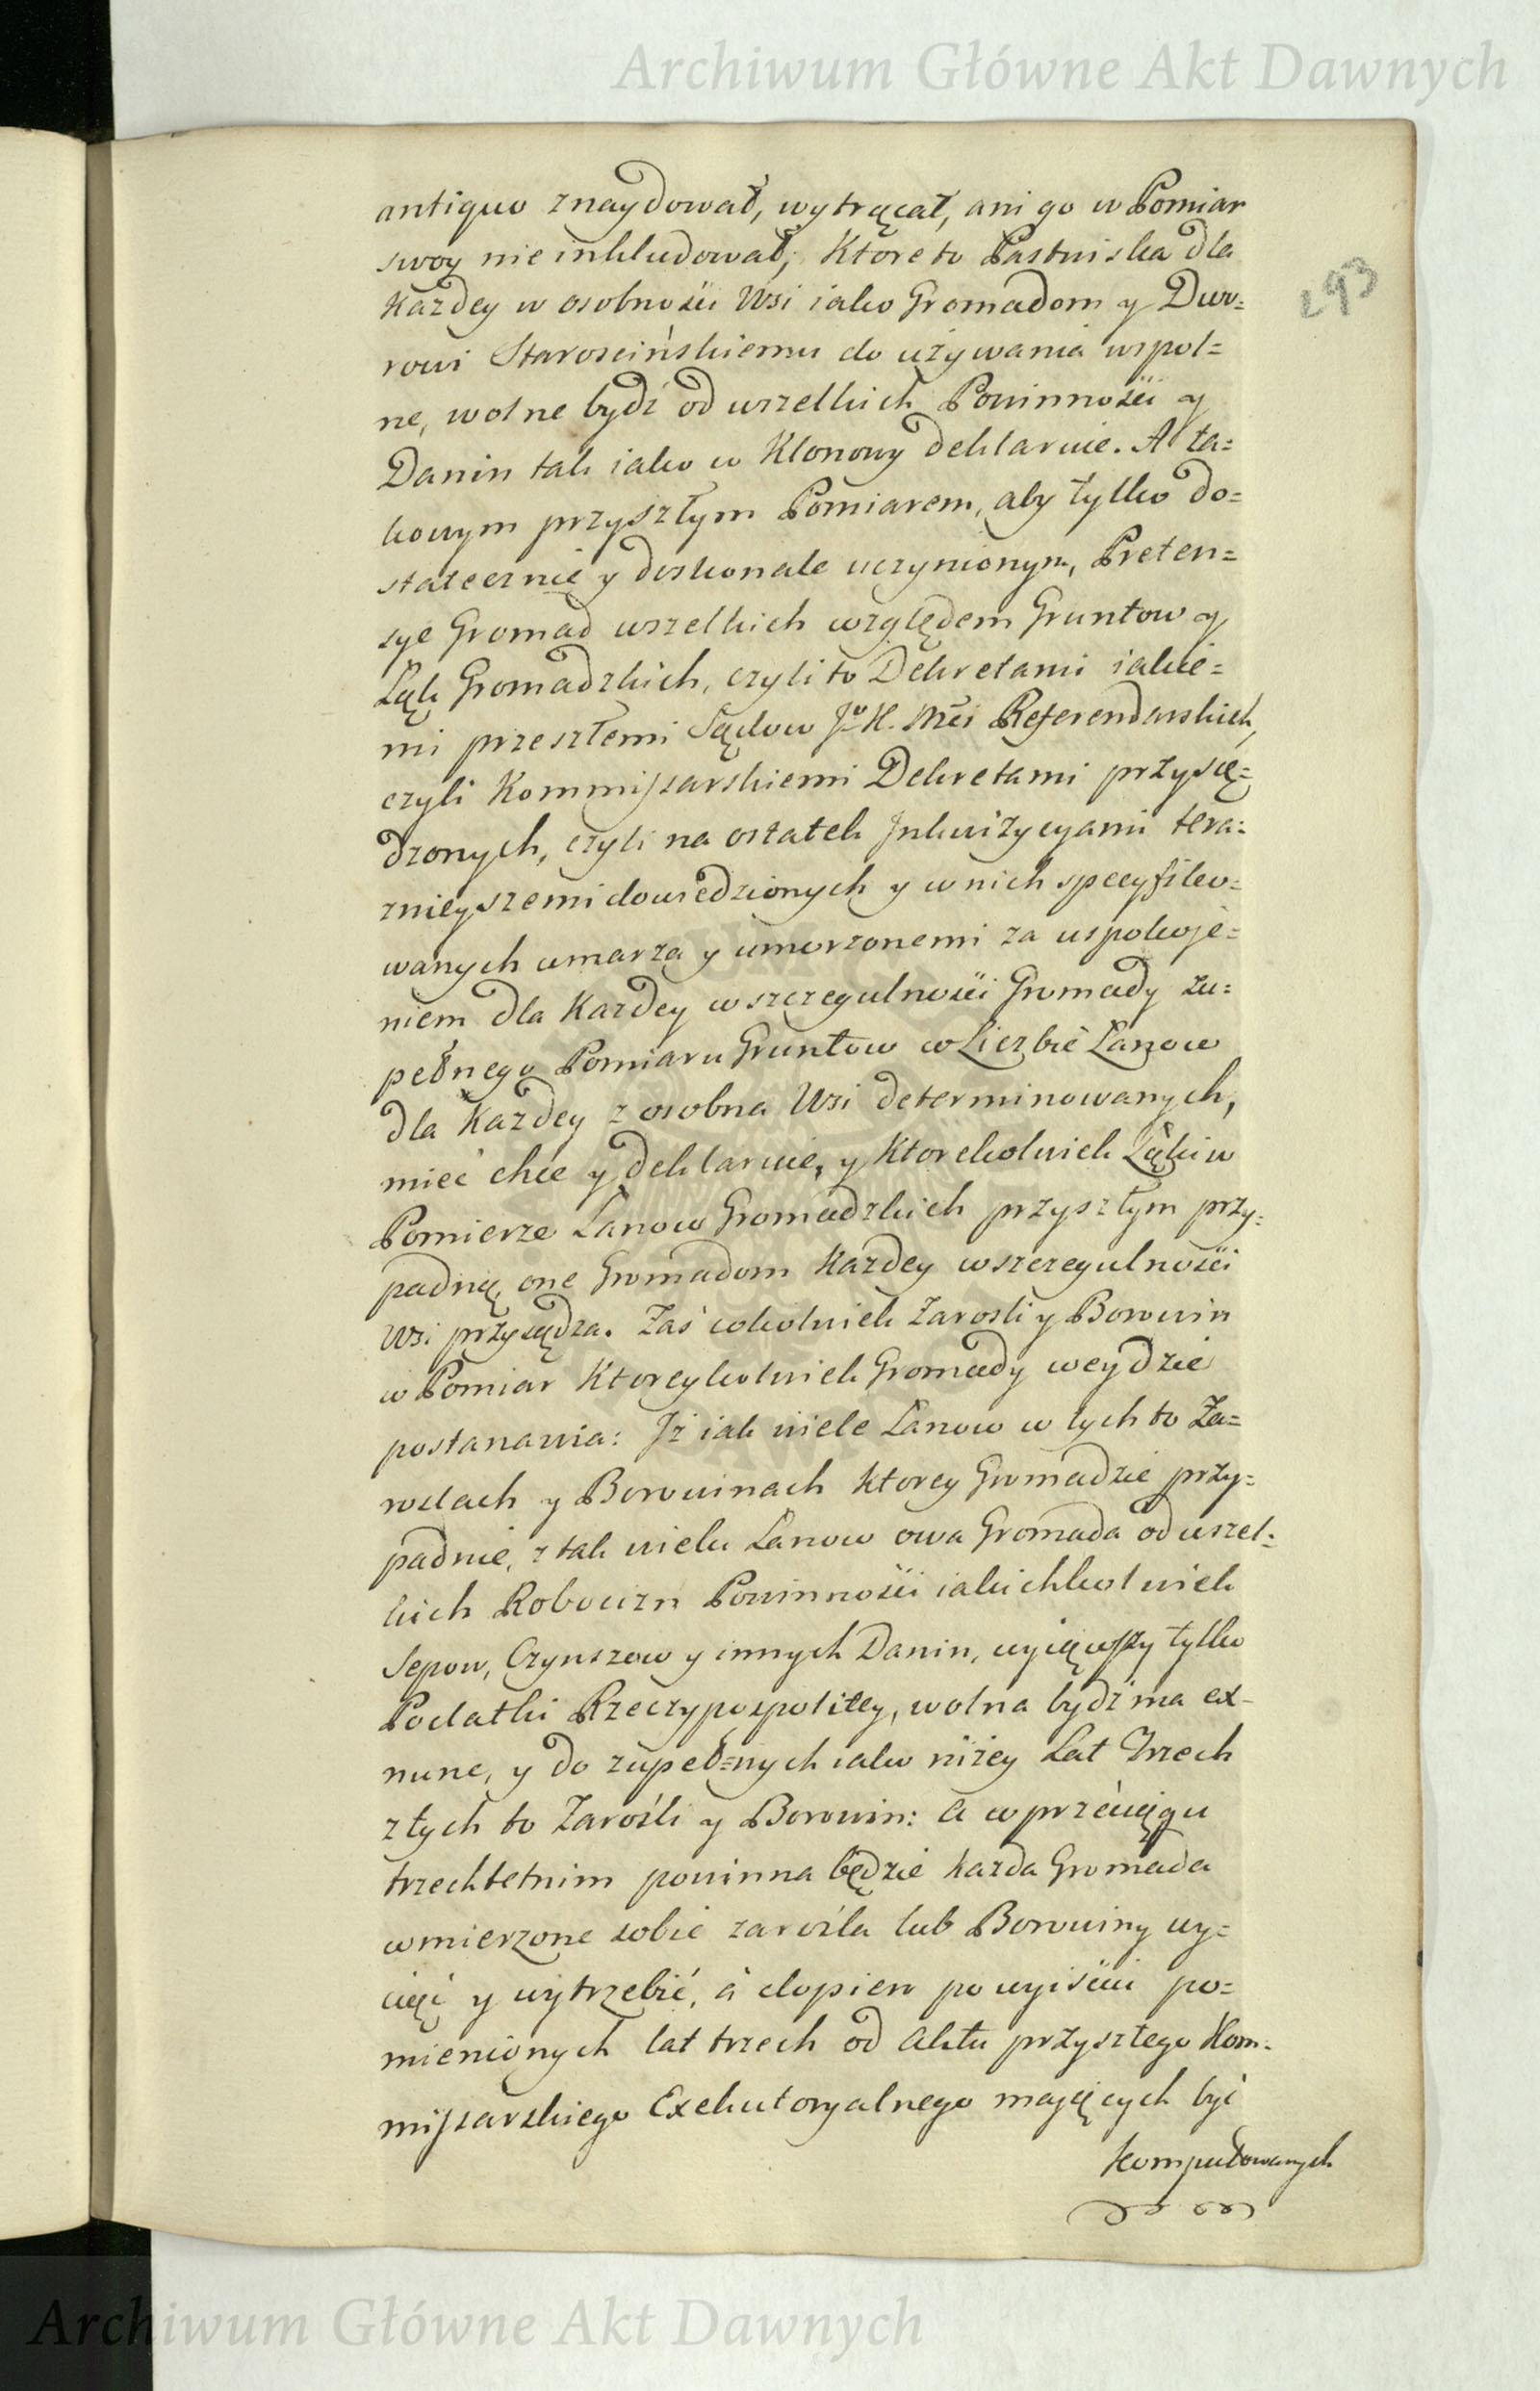 Archiwum Główne Akt Dawnych
293
antiquo znaydował, wytrącał, ani go w Pomiar
swoy nie inkludował; Ktore to Pastwiska dla
Kazdey w osobności Wsi iako Gromadom y Dwo=
rowi Starościńskiemu do używania wspol=
ne, wolne bydź od wszelkich Powinności y
Danin tak iako w Klonowy deklaruie. A ta=
kowym przyszłym Pomiarem, aby tylko do=
statecznie y doskonale uczynionym, Preten=
sye Gromad wszelkich względem Gruntow y
Łąk Gromadzkich, czyli to Dekretami iakie=
mi przeszłemi Sądow J. K. Mći Referendarskich,
czyli Kommissarskiemi Dekretami przysą=
dzonych, czyli na ostatek Inkwizycyami tera=
znieyszemi dowiedzionych y w nich specyfiko=
wanych umarza y umorzonemi za uspokoje=
niem dla Kazdey w szczegulności Gromady zu=
pełnego Pomiaru Gruntow w Liczbie Lanow
dla Kazdey z osobna Wsi determinowanych,
mieć chce y deklaruie, y Ktorekolwiek Łąki w
Pomierze Lanow Gromadzkich przyszłym przy=
padną, one Gromadom Kazdey w szczegulności
Wsi przysądza. Zaś cokolwiek Zarosli y Borowin
w Pomiar Ktoreykolwiek Gromady weydzie
postanawia: Iż iak wiele Lanow w tych to Za=
roslach y Borowinach ktorey Gromadzie przy=
padnie, z tak wielu Lanow owa Gromada od wszel=
kich Robocizn Powinności iakichkolwiek
Sepow, Czynszow y innych Danin, wyiąwszy tylko
Podatki Rzeczypospolitey, wolna bydź ma ex-
nunc, y do zupeł=nych iako niżey Lat Trzech
z tych to Zarośli y Borowin: a w przeciągu
trzechletnim powinna będzie kazda Gromada
wmierzone sobie zarośla lub Borowiny wy=
ciąć y wytrzebić, à dopiero po wyiściu po=
mienionych lat trzech od Aktu przyszłego Kom=
missarskiego Exekutoryalnego maiących być
komputowanych
Archiwum Główne Akt Dawnych